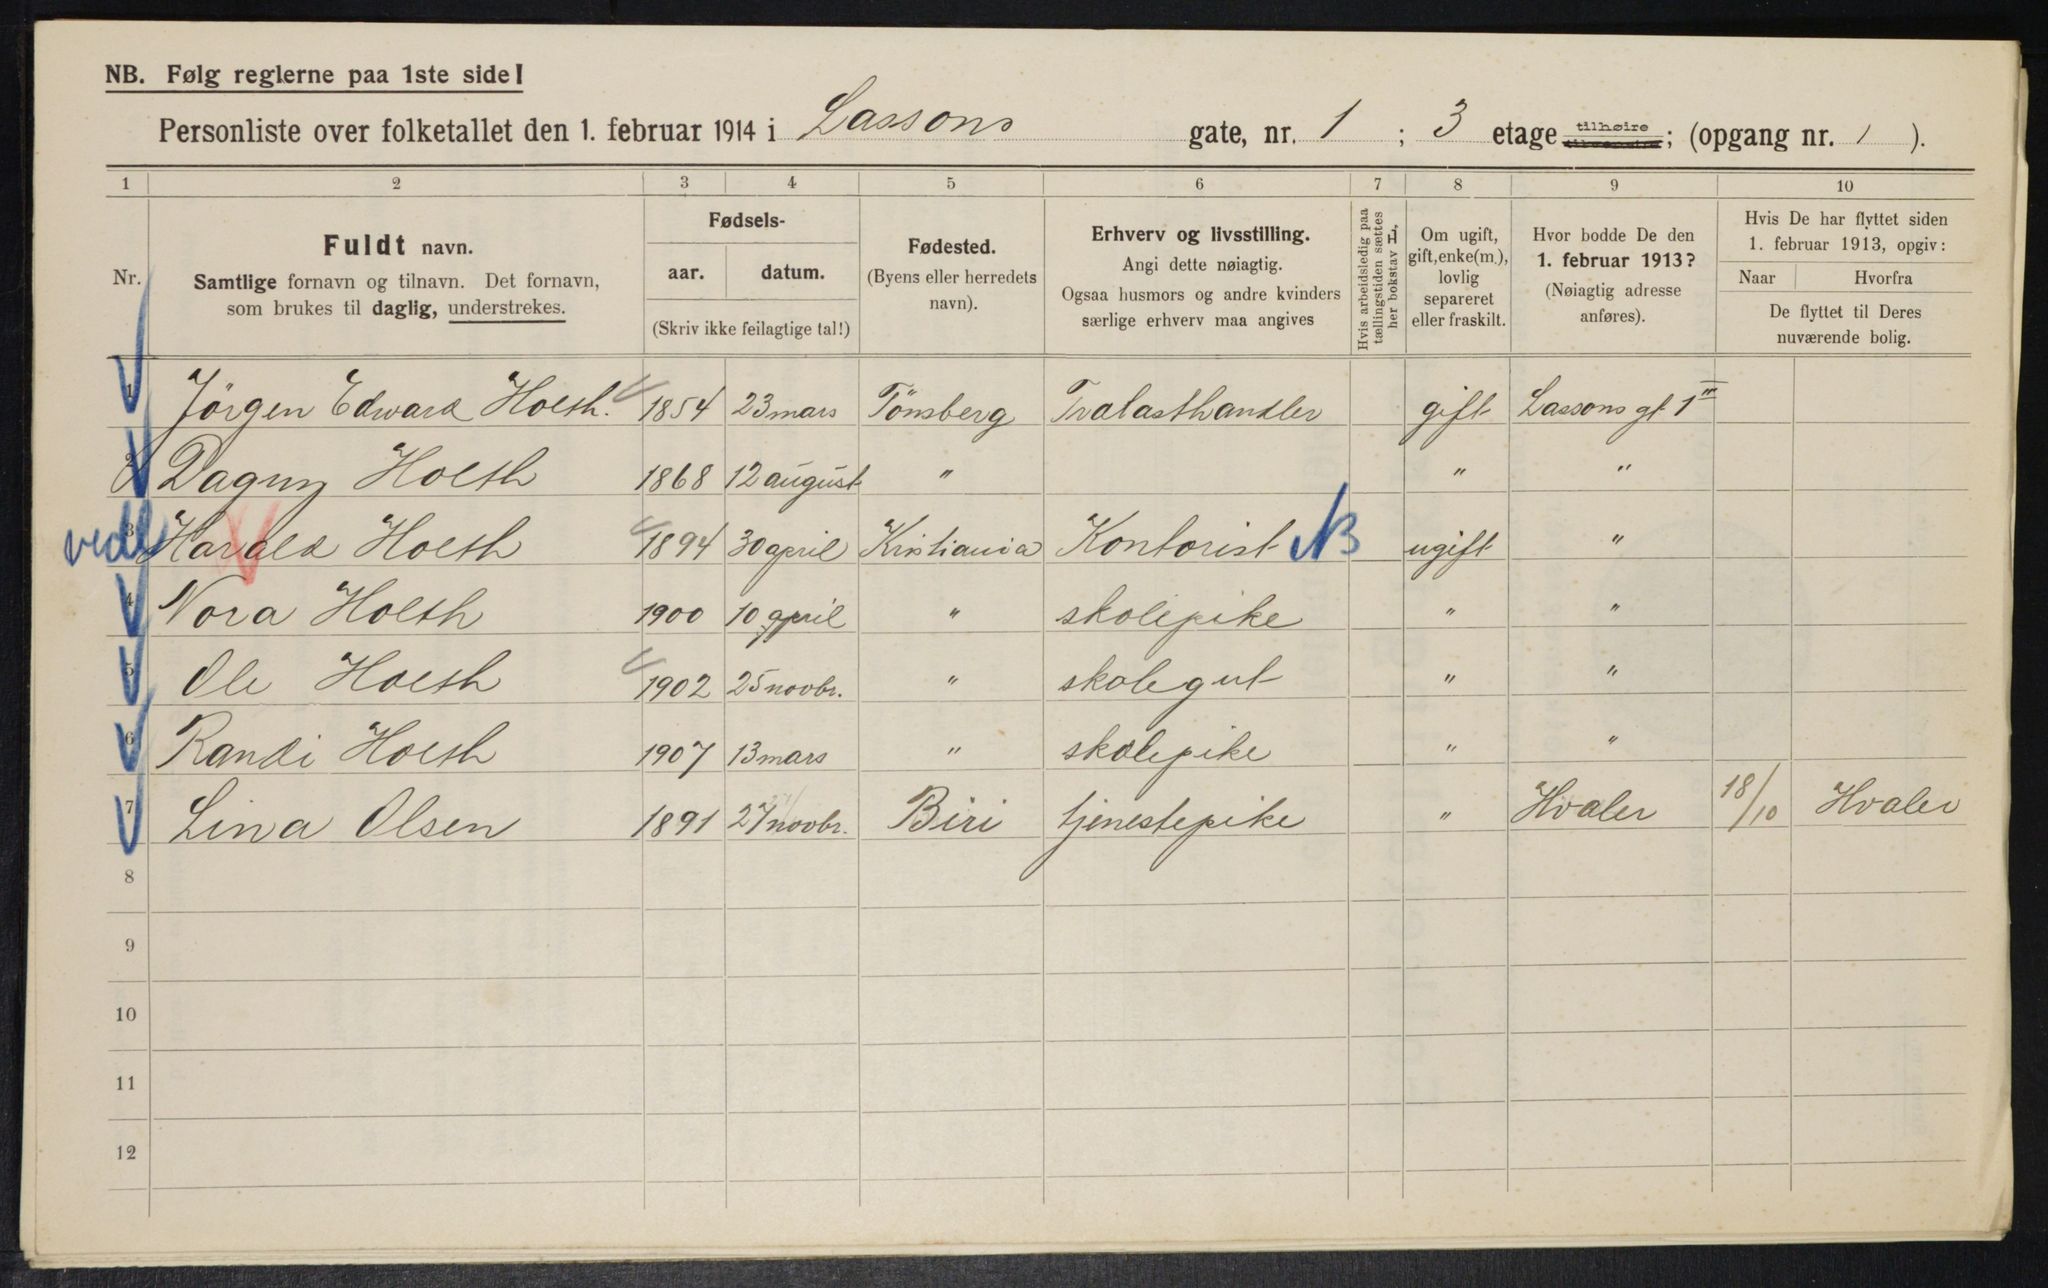 NB. Følg reglerne paa 1ste side!
Personliste over folketallet den 1. februar 1914 i Lassons gate, nr. 1 ; 3 etage tilhøire ; (opgang nr. 1 ).
1 2 3 4 5 6 7 8 9 10
Nr.
Fuldt navn.
Samtlige fornavn og tilnavn. Det fornavn,
som brukes til daglig, understrekes.
Fødsels-
aar. datum.
(Skriv ikke feilagtige tal!)
Fødested.
(Byens eller herredets
navn).
Erhverv og livsstilling.
Angi dette nøiagtig.
Ogsaa husmors og andre kvinders
særlige erhverv maa angives
Hvis arbeidsledig paa
tællingstiden sættes
her bokstav L.
Om ugift,
gift, enke(m.),
lovlig
separeret
eller fraskilt.
Hvor bodde De den
1. februar 1913?
(Nøiagtig adresse
anføres).
Hvis De har flyttet siden
1. februar 1913, opgiv:
Naar Hvorfra
De flyttet til Deres
nuværende bolig.
1 Jörgen Edward Hoesh. 1854 23 mars Tönsberg Tralasthandler gift Lassons gt 1 III
2 Dagny Hoesh 1868 12 august " " "
vedl
3 Harald Hoesh 1894 30 april Kristiania Kontorist ugift "
4 Nora Hoesh 1900 10 april " skolepike " "
5 Ole Hoesh 1902 25 novbr. " skolegut " "
6 Randi Hoesh 1907 13 mars " skolepike " "
7 Lina Olsen 1891 27 novbr. Biri tjenestepike " Hvaler 18/10 Hvaler
8
9
10
11
12